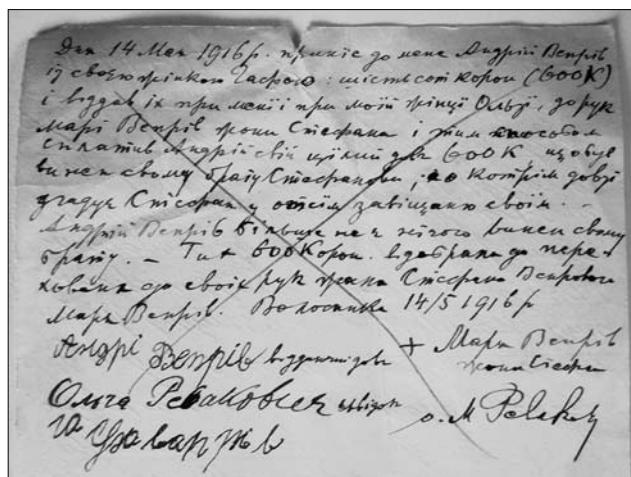 Дня 14 Мая 1916 р. приніс до мене Андрій Вепрів
із своєю жінкою : шістьсот корон (600 К)
і віддав їх при мені і при моїй жінці Ользі, до рук
Марі Вепрів жони Стефана і тим способом
сплатив Андрій свій цілий довг 600 К що був
винен свому брату Стефанови, о котрім довзі
згадує Стефан у своїм завіщаню своїм. –
Андрій Вепрів більше не є нічого винен свому
брату. – Тих 600 Корон відобрала до пере-
хованя до своїх рук жона Стефана Вепрового
Мара Вепрів. Волосянка 14/5 1916 р
Андрі Вепрів віддаючий довг + Мари Вепрів
жони Стефана
Ольга Ревакович свідок о. М Ревакович